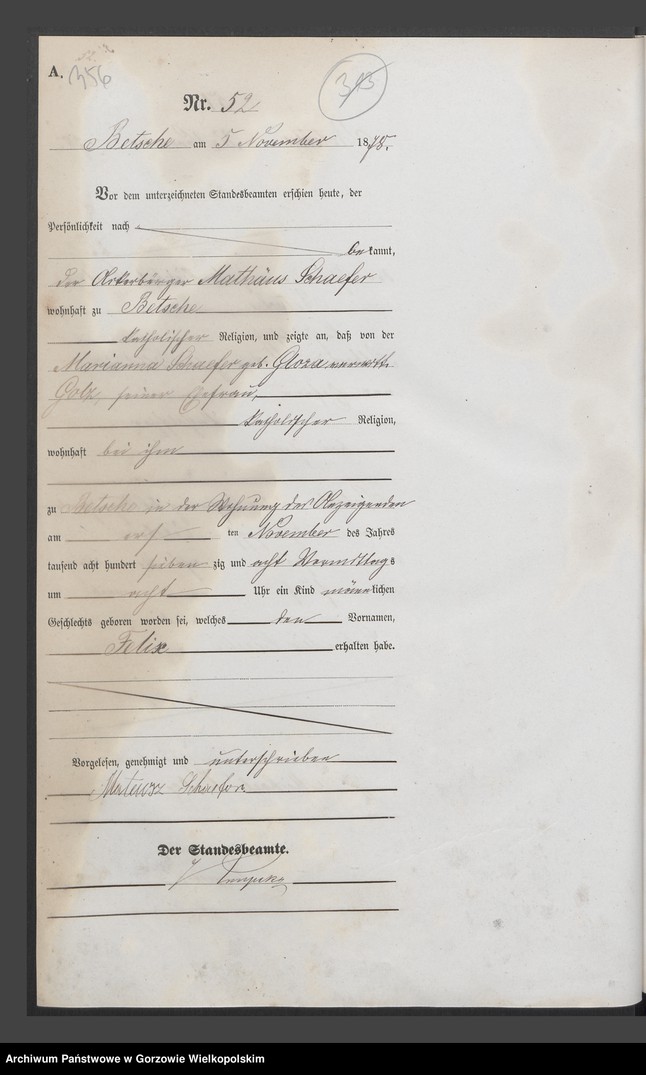 A. 356
Nr. 52
Betsche am 5 November 1878.
Vor dem unterzeichneten Standesbeamten erschien heute, der
Persönlichkeit nach
bekannt,
der Ackerbürger Mathäus Schaefer
wohnhaft zu Betsche
katholischer Religion, und zeigte an, daß von der
Marianna Schaefer geb. Gloza verwittw.
Golz, seiner Ehefrau,
katholischer Religion,
wohnhaft bei ihm
zu Betsche in der Wohnung des Anzeigenden
am ersten November des Jahres
tausend acht hundert siebenzig und acht Vormittags
um acht Uhr ein Kind männlichen
Geschlechts geboren worden sei, welches den Vornamen,
Felix erhalten habe.
Vorgelesen, genehmigt und unterschrieben
Mateusz Schaefer
Der Standesbeamte.
Archiwum Państwowe w Gorzowie Wielkopolskim